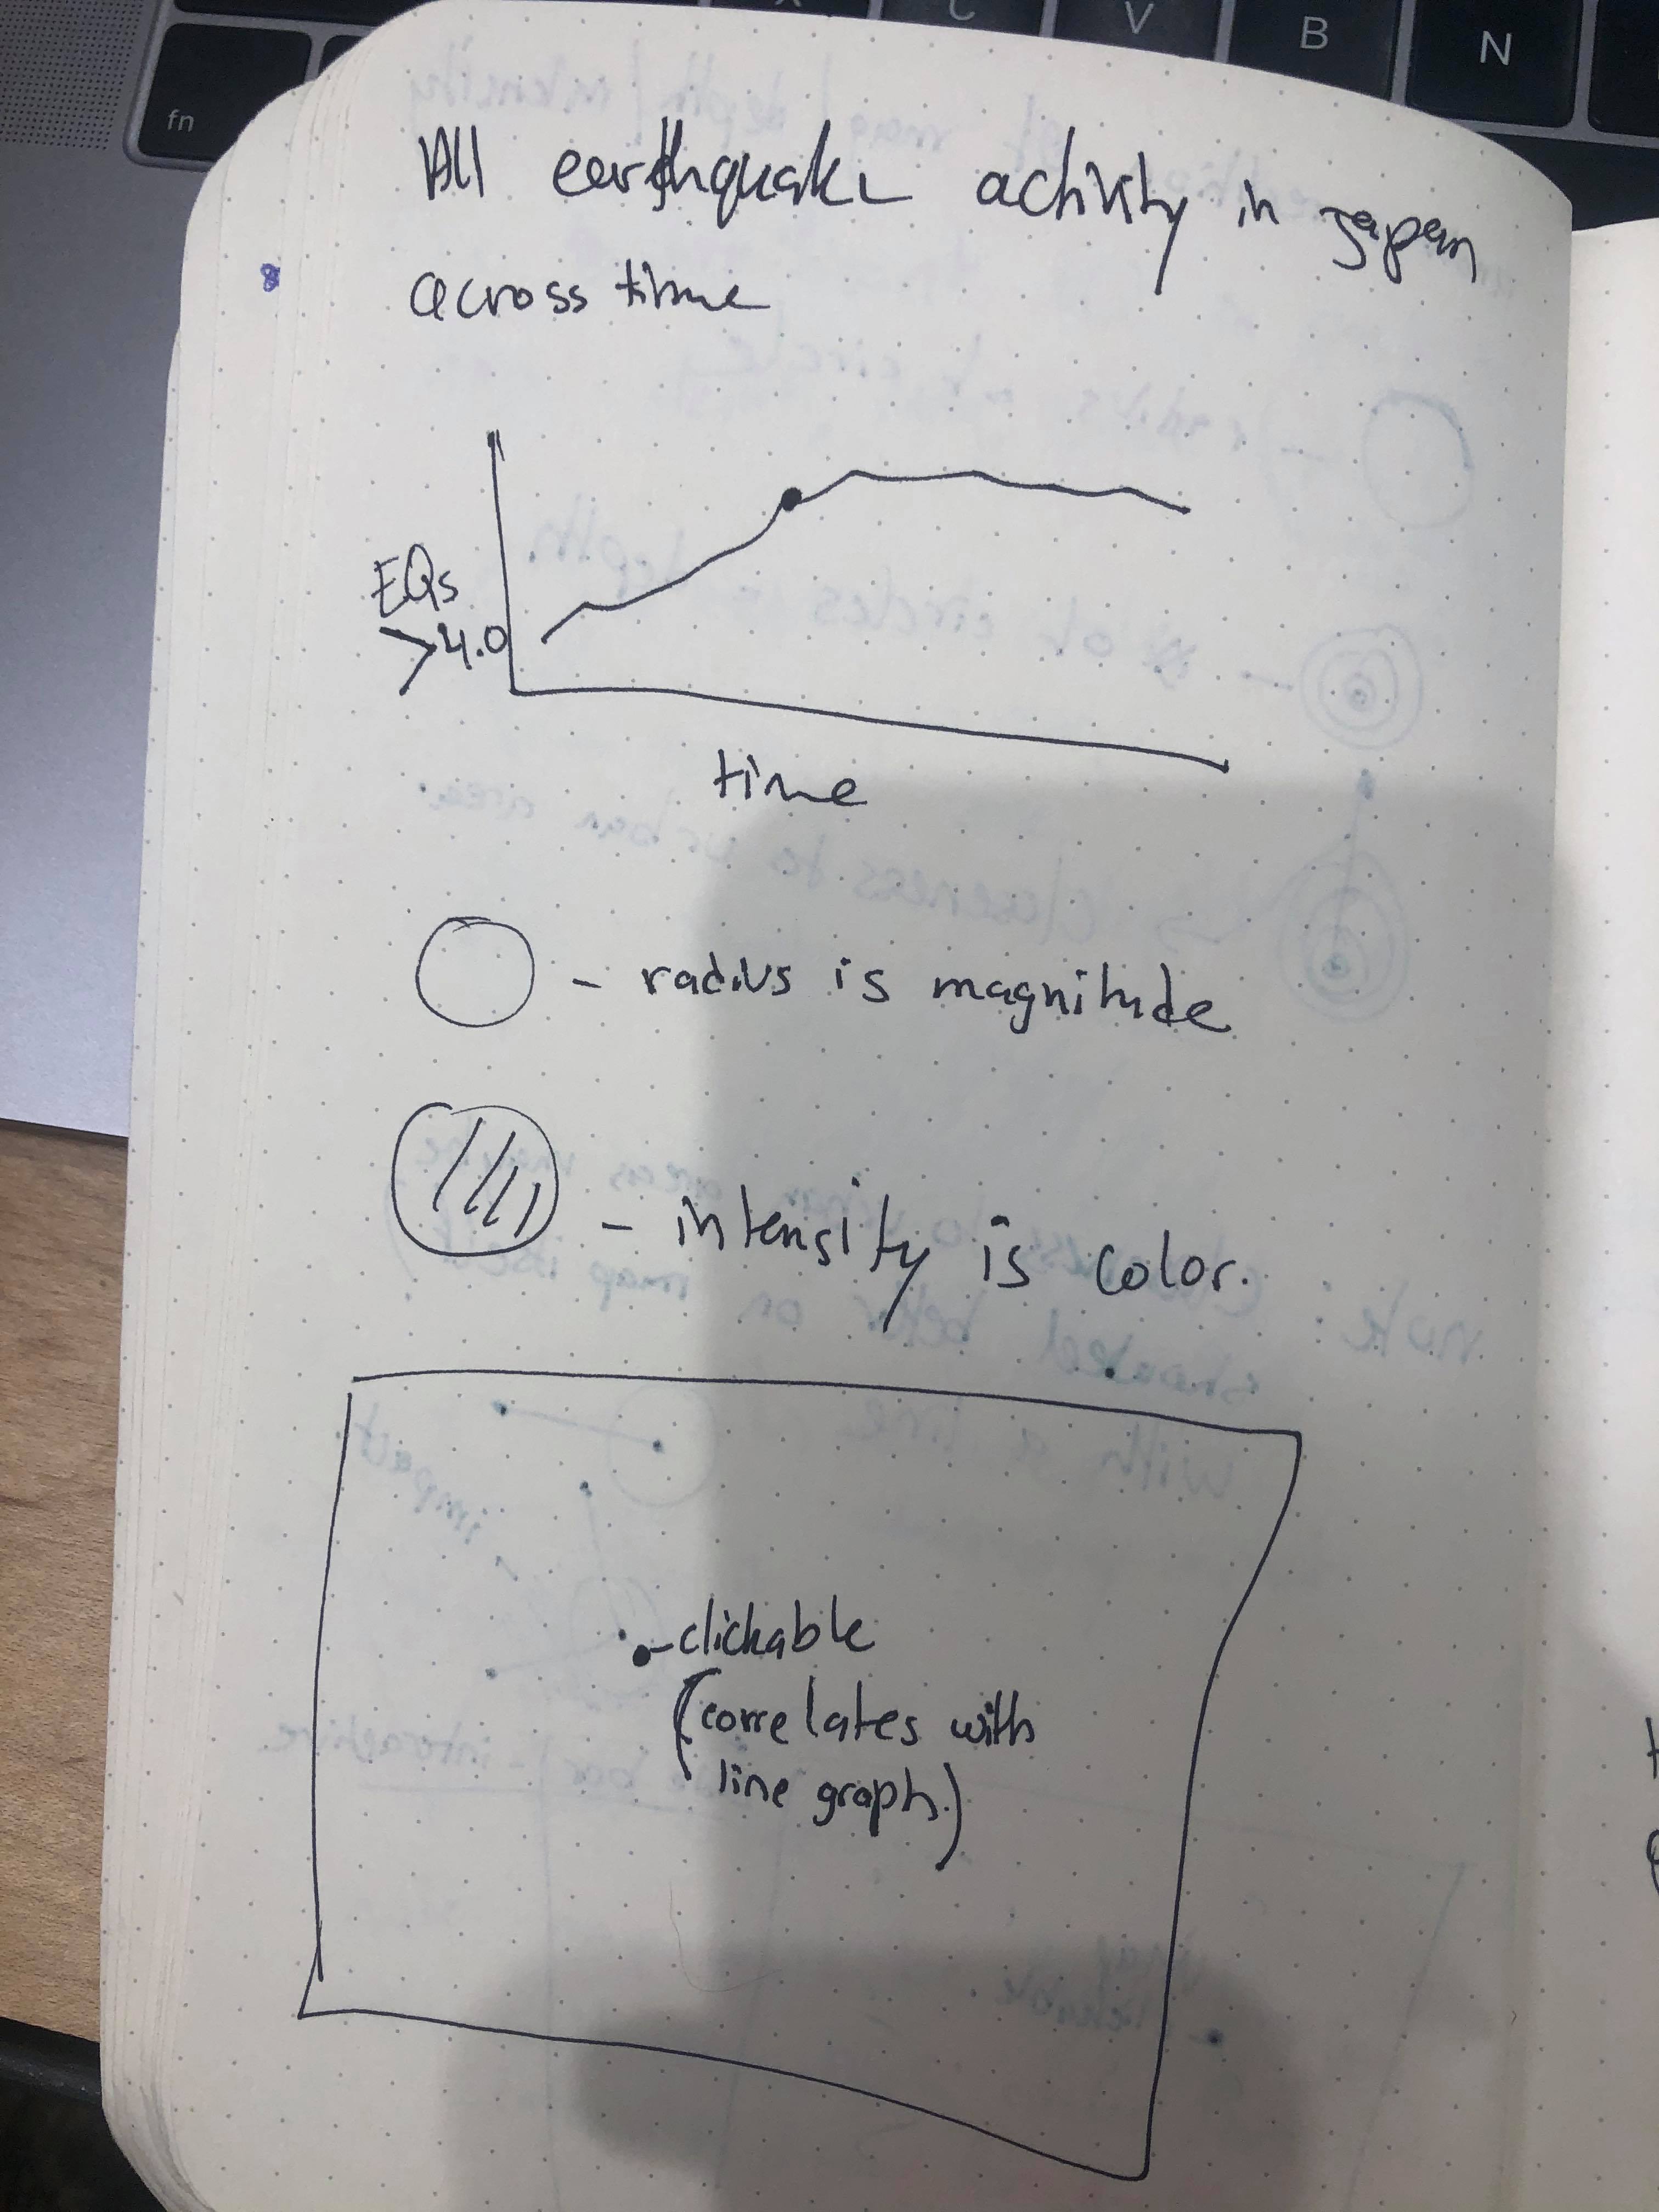 fn
C
V
B
N
All earthquake activity in Japan
across time
8
EQs
>4.0
time
- radius is magnitude
- intensity is color.
- clickable
(correlates with
line graph.)